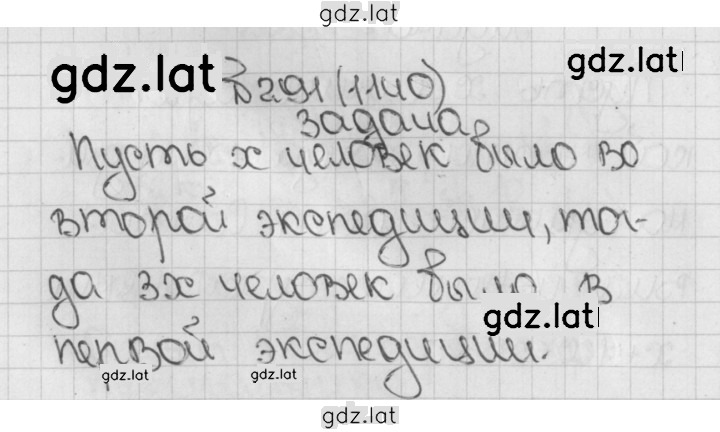 gdz.lat
gdz.lat
gdz.lat
№291(1140)
задача
Пусть x человек было во
второй экспедиции, тог-
да 3x человек было в
gdz.lat
первой экспедиции.
gdz.lat
gdz.lat
gdz.lat